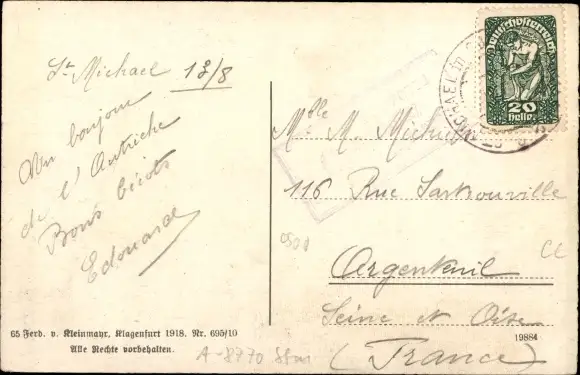 St Michael 13/8
Un bonjour
de l'Autriche
Bons bécots
Edouard
65 Ferd. v. Kleinmayr, Klagenfurt 1918. Nr. 695/10
Alle Rechte vorbehalten.
A-8770 SSM
Deutschösterreich
20
Heller
MICHAEL
Mlle M. Michu
116 Rue Sartrouville
Argenteuil
Seine et Oise
(France)
19884
CL